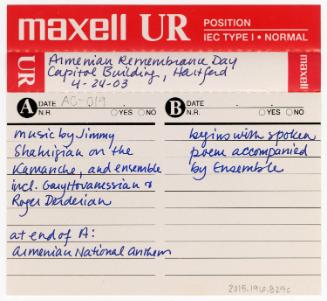 maxell UR POSITION
IEC TYPE I • NORMAL
UR
Armenian Remembrance Day
Capitol Building, Hartford
4-24-03
maxell
A DATE AC-019
N.R. YES NO
music by Jimmy
Shahrigian on the
Kamanche, and ensemble
incl. Gary Hovanessian &
Roger Derderian
at end of A:
Armenian National Anthem
B DATE
N.R. YES NO
begins with spoken
poem accompanied
by Ensemble
2015.196.829c